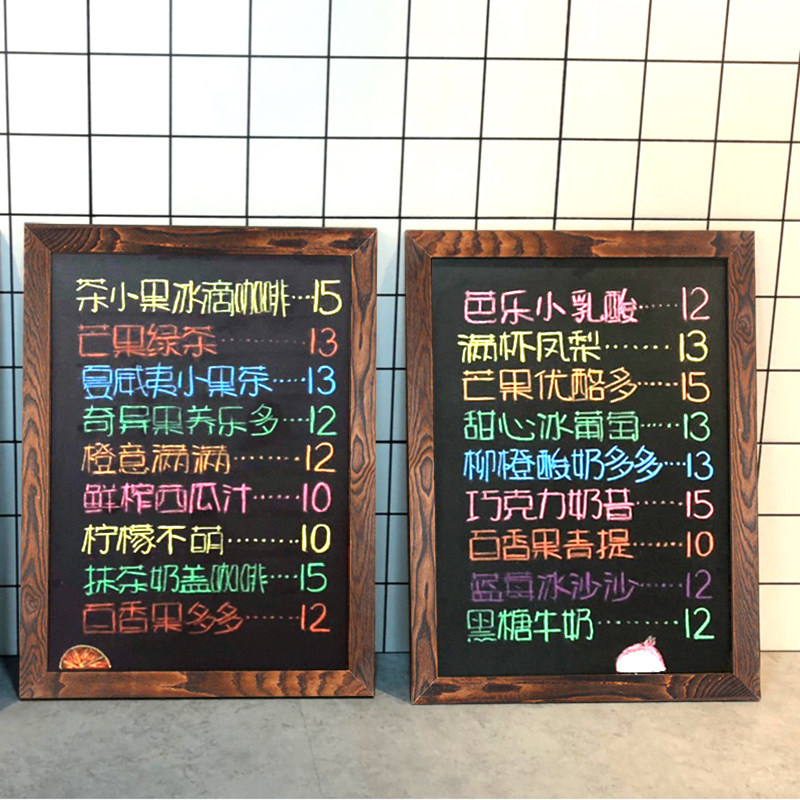 茶小果冰滴咖啡···15
芒果绿茶········13
夏威夷小果茶····13
奇异果养乐多···12
橙意满满·······12
鲜榨西瓜汁······10
柠檬不萌·······10
抹茶奶盖咖啡···15
百香果多多······12
芭乐小乳酸·····12
满杯凤梨·······13
芒果优酪多····15
甜心冰葡萄····13
柳橙酸奶多多···13
巧克力奶昔·····15
百香果青提·····10
蓝莓冰沙沙·····12
黑糖牛奶········12